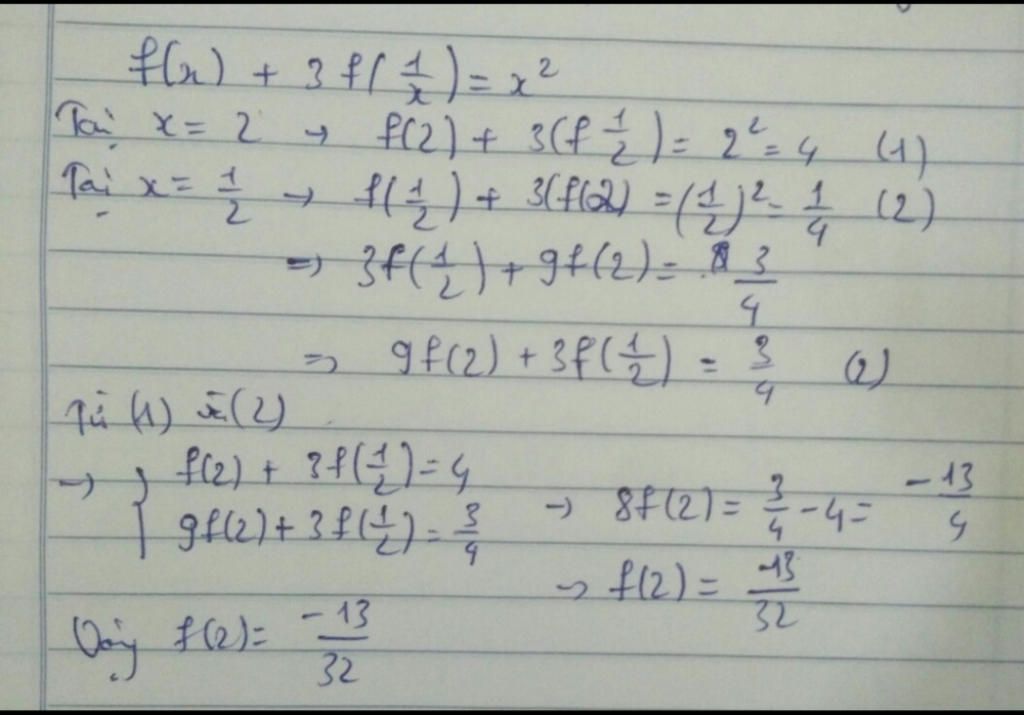 f(x) + 3f(1/x) = x²
Tại x = 2 → f(2) + 3(f 1/2) = 2² = 4 (1)
Tại x = 1/2 → f(1/2) + 3(f(2) = (1/2)² = 1/4 (2)
=> 3f(1/2) + 9f(2) = 3/4
=> 9f(2) + 3f(1/2) = 3/4 (2)
Từ (1) và (2)
→ { f(2) + 3f(1/2) = 4
9f(2) + 3f(1/2) = 3/4 → 8f(2) = 3/4 - 4 = -13/4
→ f(2) = -13/32
Vậy f(2) = -13/32